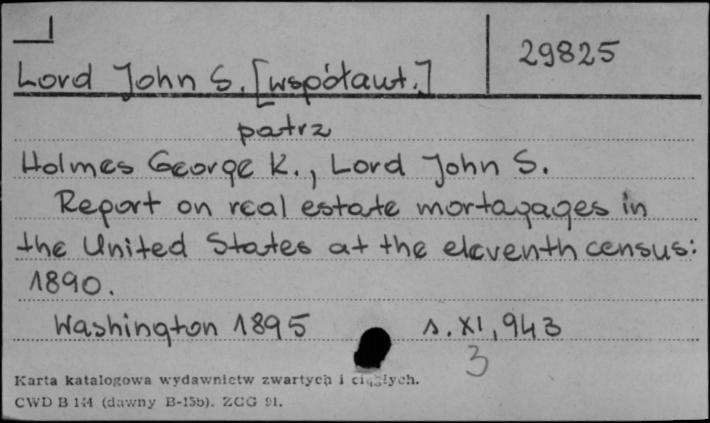 29825
Lord John S. [współaut.]
patrz
Holmes George K., Lord John S.
Report on real estate mortagages in
the United States at the eleventh census:
1890.
Washington 1895 s. XI, 943
3
Karta katalogowa wydawnictw zwartych i ciągłych.
CWD B 144 (dawny B-15b). ZCG 91.